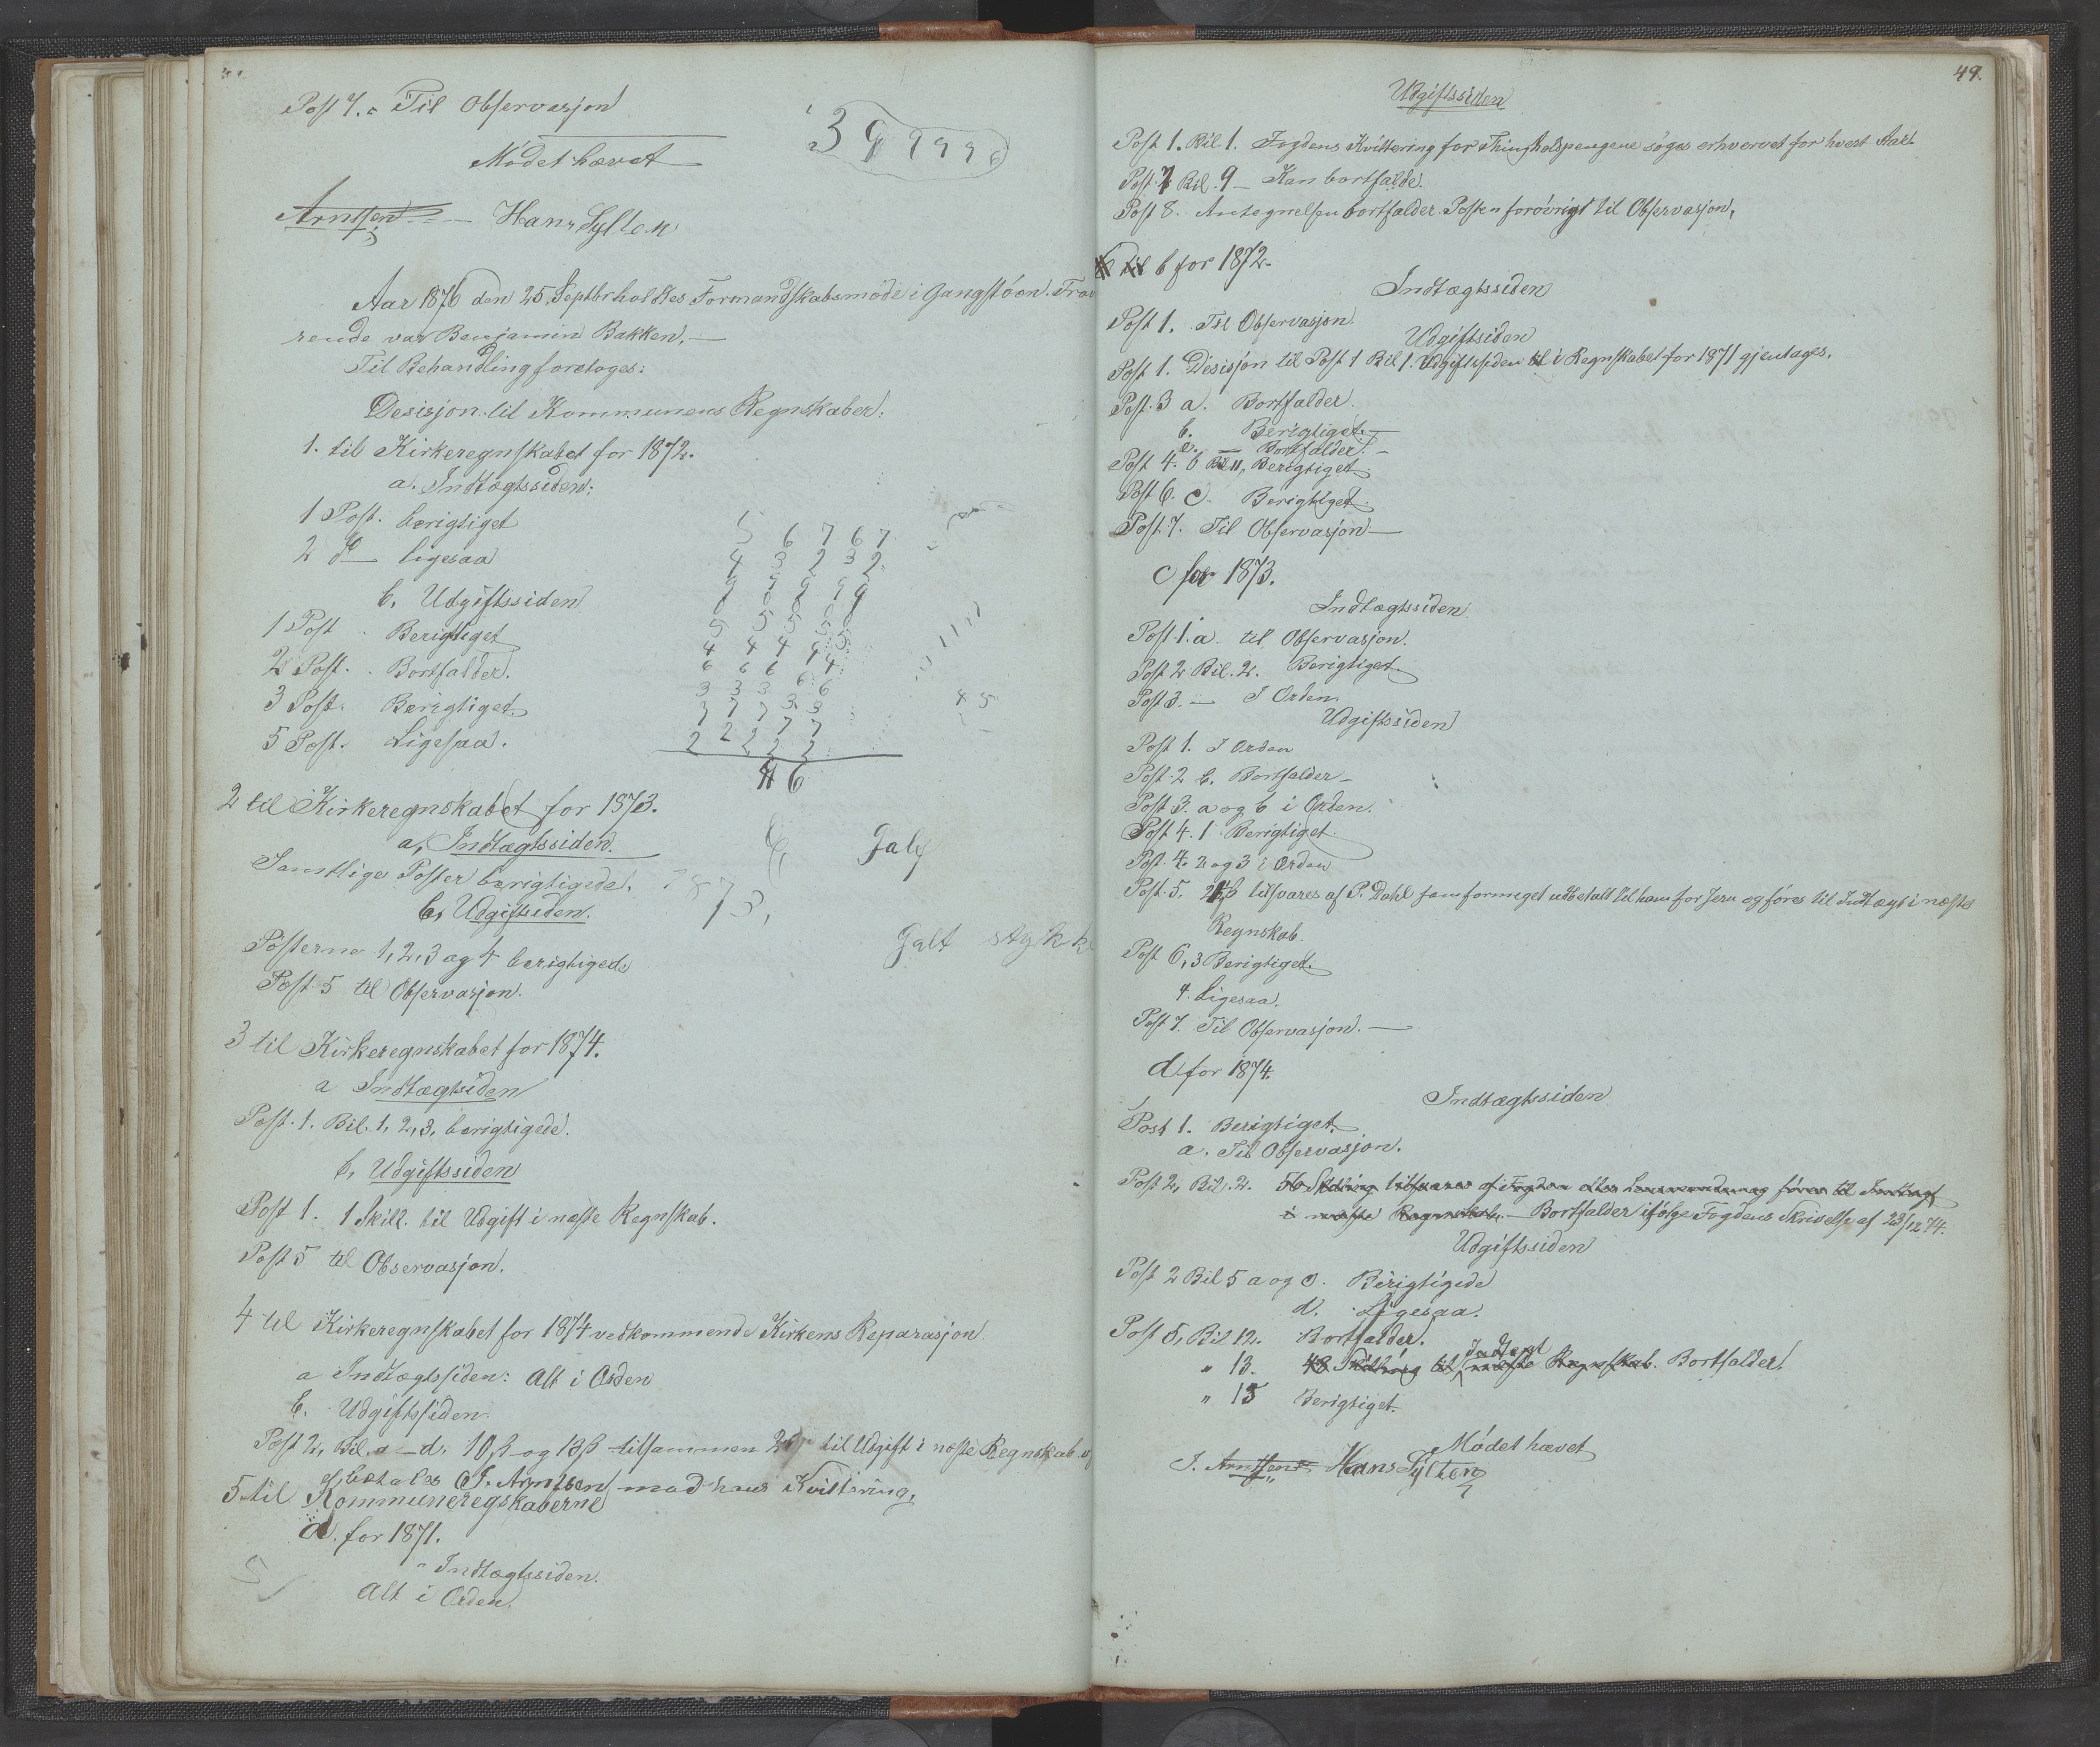 Post 7. " Til Observasjon
Mødet hævet
Arntsen — Hans Sylten
Aar 1876 den 25 Septbr holdtes Formandskabsmøde i Gangstøen. Fravæ
rende var Benjamin Bakken. —
Til Behandling foretoges:
Desisjon til Kommunens Regnskaber:
1. til Kirkeregnskabet for 1872.
a. Indtægtssiden:
1 Post. berigtiget
2 do — ligesaa
b. Udgiftssiden
1 Post . Berigtiget
2 Post. . Bortfalder.
3 Post. Berigtiget.
5 Post. Ligesaa.
2 til Kirkeregnskabet for 1873.
a, Indtægtssiden.
Samtlige Poster berigtigede.
b, Udgiftsiden.
Posterne 1, 2, 3 og 4 berigtigede
Post 5 til Observasjon.
3 til Kirkeregnskabet for 1874.
a Indtægtsiden
Post. 1. Bil. 1, 2, 3, berigtigede.
b, Udgiftssiden
Post 1. 1 Skill. til Udgift i næste Regnskab.
Post 5 til Observasjon.
4 til Kirkeregnskabet for 1874 vedkommende Kirkens Reparasjon.
a Indtægtssiden: Alt i Orden
b. Udgiftssiden.
Post 2, Bil. a — d. 10 ß og 13 ß tilsammen til Udgift i næste Regnskab og
betales Arntsen mod hans Kvittering.
5 til Kommuneregskaberne
a. for 1871.
" Indtægtssiden.
Alt i Orden.
3 9 9 9 9 6
5 6 7 6 7
4 3 2 3 2
6
1873.
Galt
Galt stykk
49.
Udgiftssiden
Post 1. Bil 1. Fogdens Kvittering for Thingholspengene søges erhvervet for hvert Aar.
Post. 7 Bil. 9 — Kan bortfalde.
Post 8. Antegnelsen bortfalder. Posten forøvrigt til Observasjon,
b for 1872.
Indtægtssiden
Post 1. Til Observasjon.
Udgiftsiden
Post 1. Desisjon til Post 1 Bil 1. Udgiftssiden til i Regnskabet for 1871 gjentages.
Post. 3 a. Bortfalder.
b. Berigtiget. —
e. — Bortfalder. —
Post 4. b Bil 11, Berigtiget.
Post 6. c. Berigtiget.
Post 7. Til Observasjon —
c for 1873.
Indtægtssiden.
Post 1. a til Observasjon.
Post 2 Bil. 2. Berigtiget.
Post 3. — I Orden.
Udgiftssiden
Post 1. I Orden
Post 2 b. Bortfalder —
Post 3. a og b i Orden.
Post 4. 1 Berigtiget.
Post. 4. 2 og 3 i Orden
Post. 5, tilsvares af P. Dahl som formeget udbetalt til ham for Jern og føres til Indtægt i næste
Regnskab.
Post 6, 3 Berigtiget.
4. Ligesaa.
Post 7. Til Observasjon. —
d for 1874.
Indtægtssiden
Post 1. Berigtiget.
a. Til Observasjon.
Post 2, Bil. 2. 56 Skilling tilsvares af Fogden eller Lensmanden og føres til Indtægt
i næste Regnskab. — Bortfalder ifølge Fogdens Skrivelse af 23/12 74.
Udgiftssiden
Post 2 Bil 5 a og c. Berigtigede
d. Ligesaa.
Post 5, Bil 12. Bortfalder.
" 13. 48 Skilling til Indtægt næste Regnskab. Bortfalder.
" 15 Berigtiget.
Mødet hævet
J. Arntsen Hans Sylten